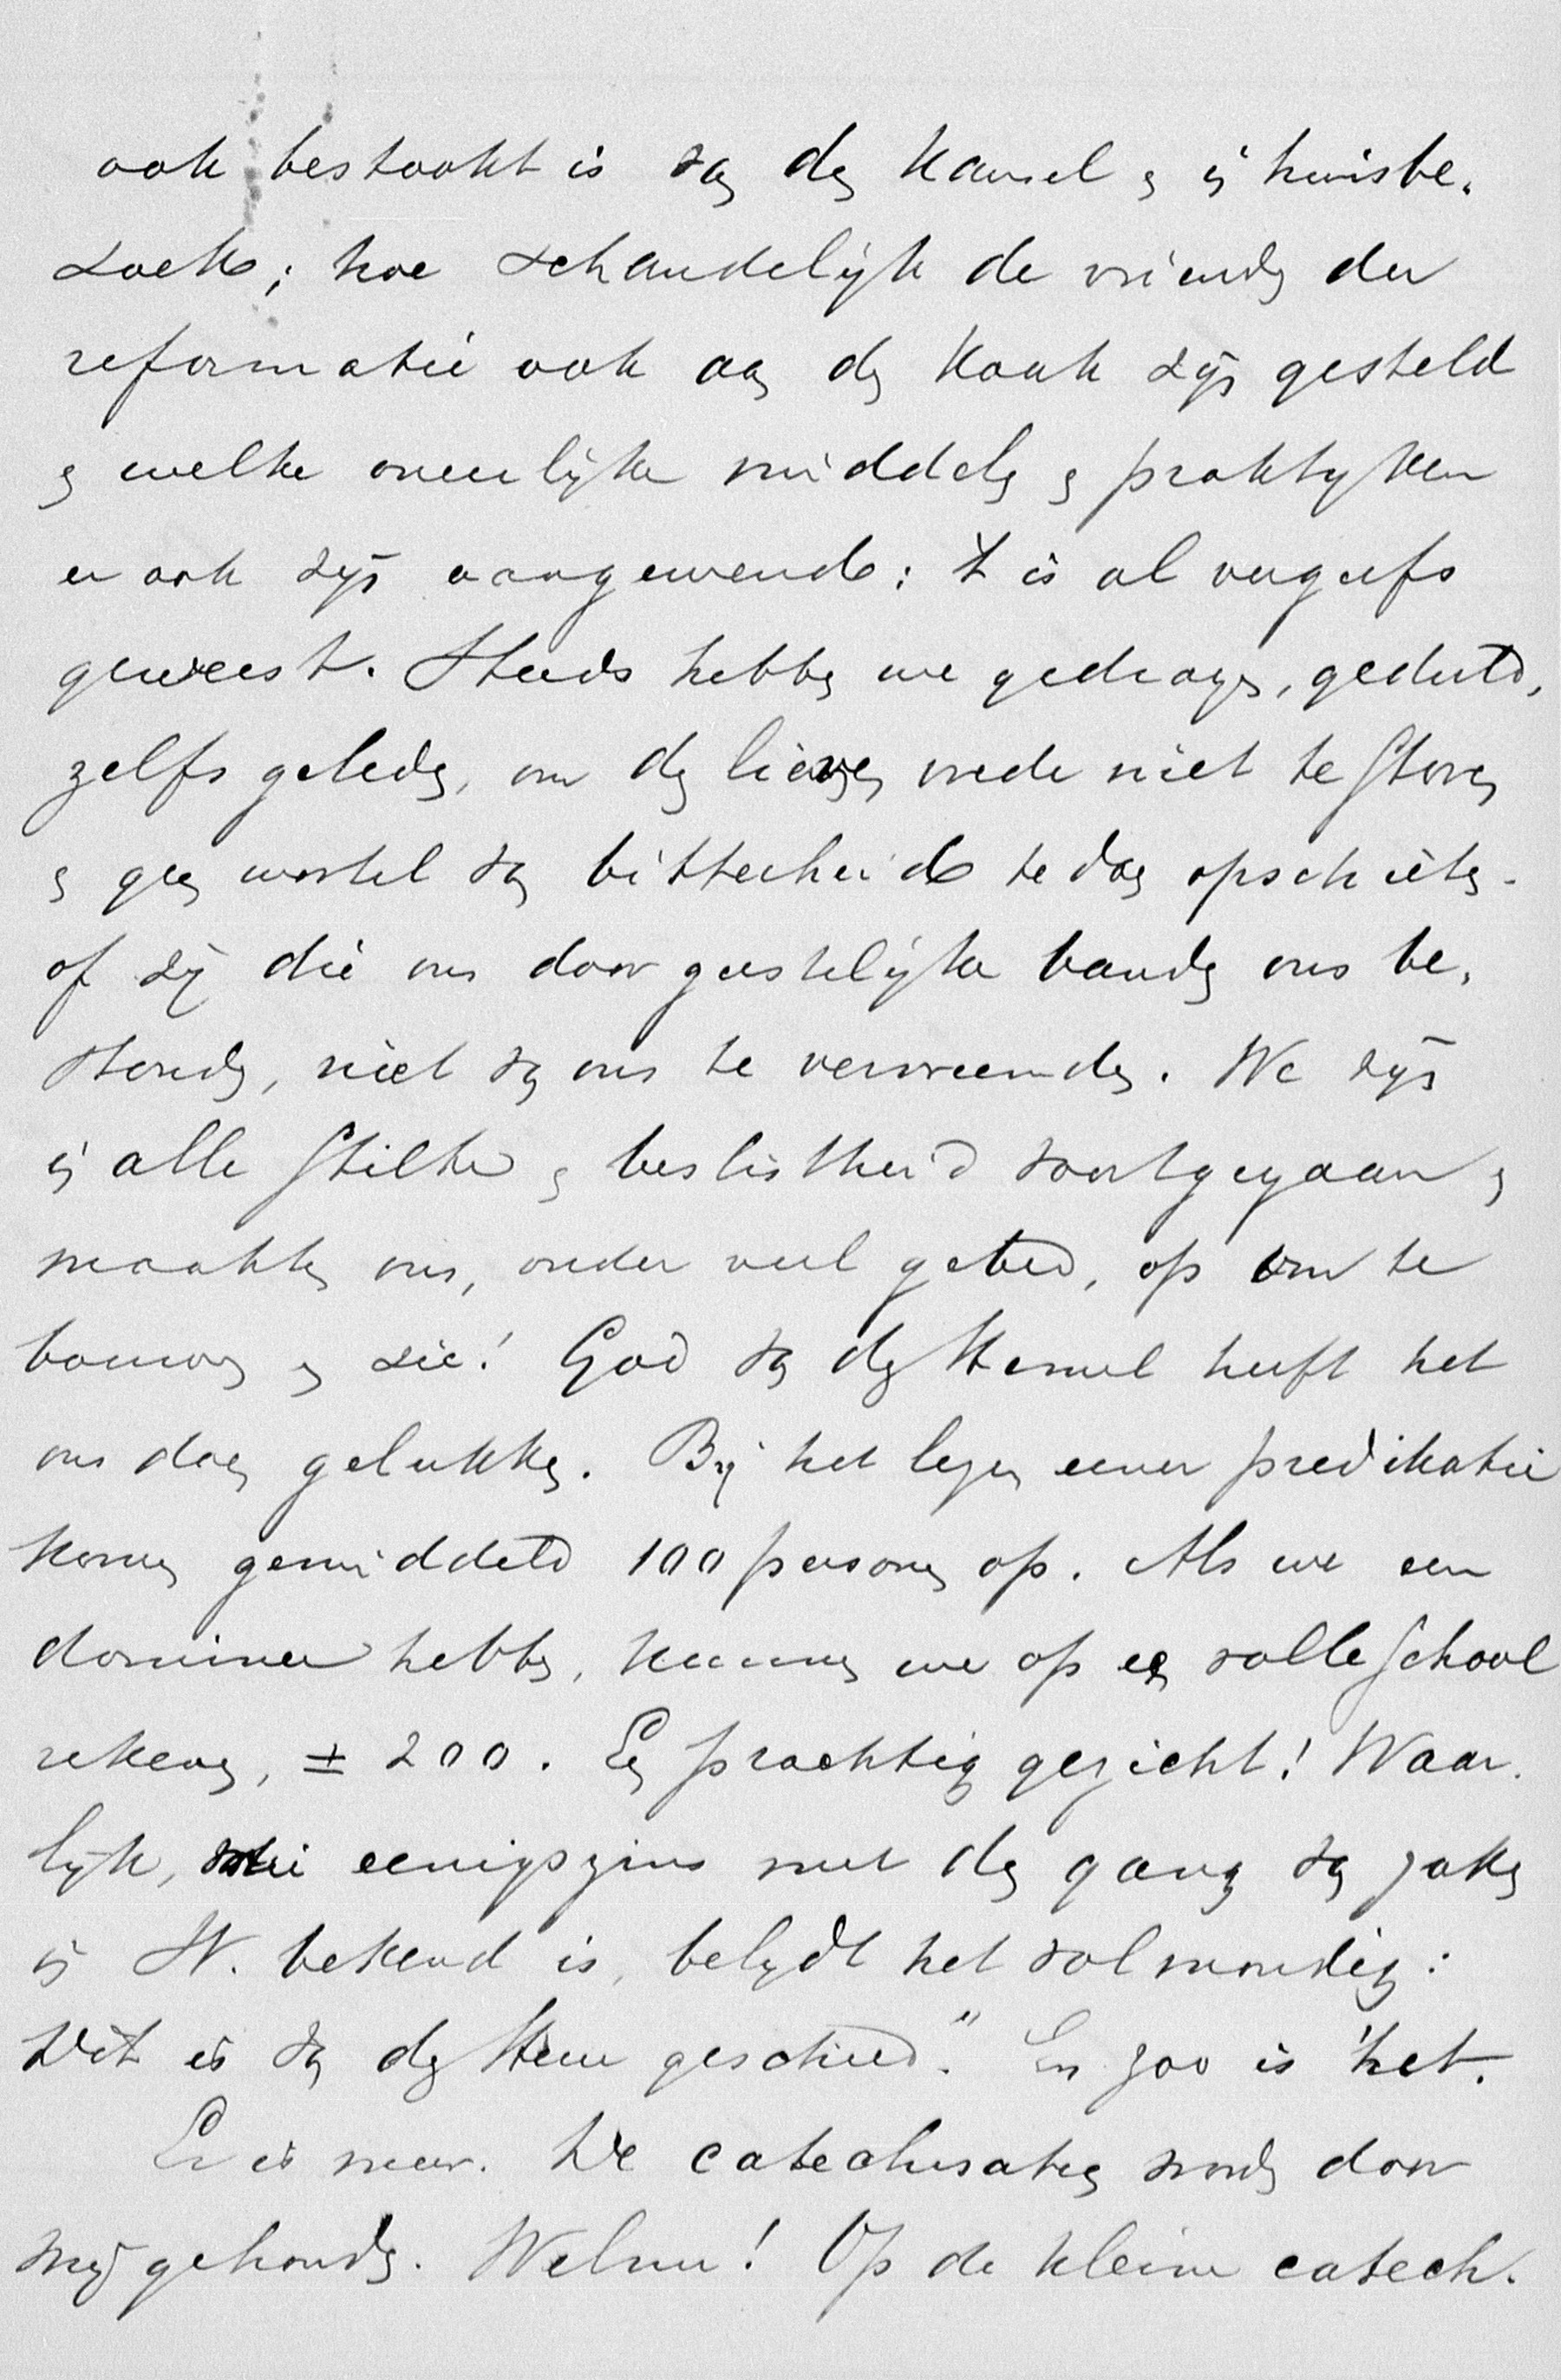 ook bestookt is van den kansel en in huisbe-
zoek; hoe schandelijk de vrienden der
reformatie ook aan den kaak zijn gesteld
en welke oneerlijke middelen en praktijken
er ook zijn aangewend: 't is al vergeefs
geweest. Steeds hebben we gedragen, geduld,
zelfs geleden, om den lieven vrede niet te storen
en geen wortel van bitterheid te doen opschieten.
of zij die ons door geestelijke banden ons be-
stonden, niet van ons te vervreemden. We zijn
in alle stilte en beslistheid voortgegaan en
maakten ons, onder veel gebed, op om te
bouwen en zie! God van den Hemel heeft het
ons doen gelukken. Bij het lezen eener predikatie
komen gemiddeld 100 personen op. Als we een
dominee hebben, kunnen we op een volle school
rekenen, ± 200. Een prachtig gezicht! Waar-
lijk, wie eenigszins met den gang van zaken
in W. bekend is, belijdt het volmondig:
Dit is van den Heere geschied." En zoo is 't het.
Er is meer. De catechisatien worden door
mij gehouden. Welnu! Op de kleine catech.